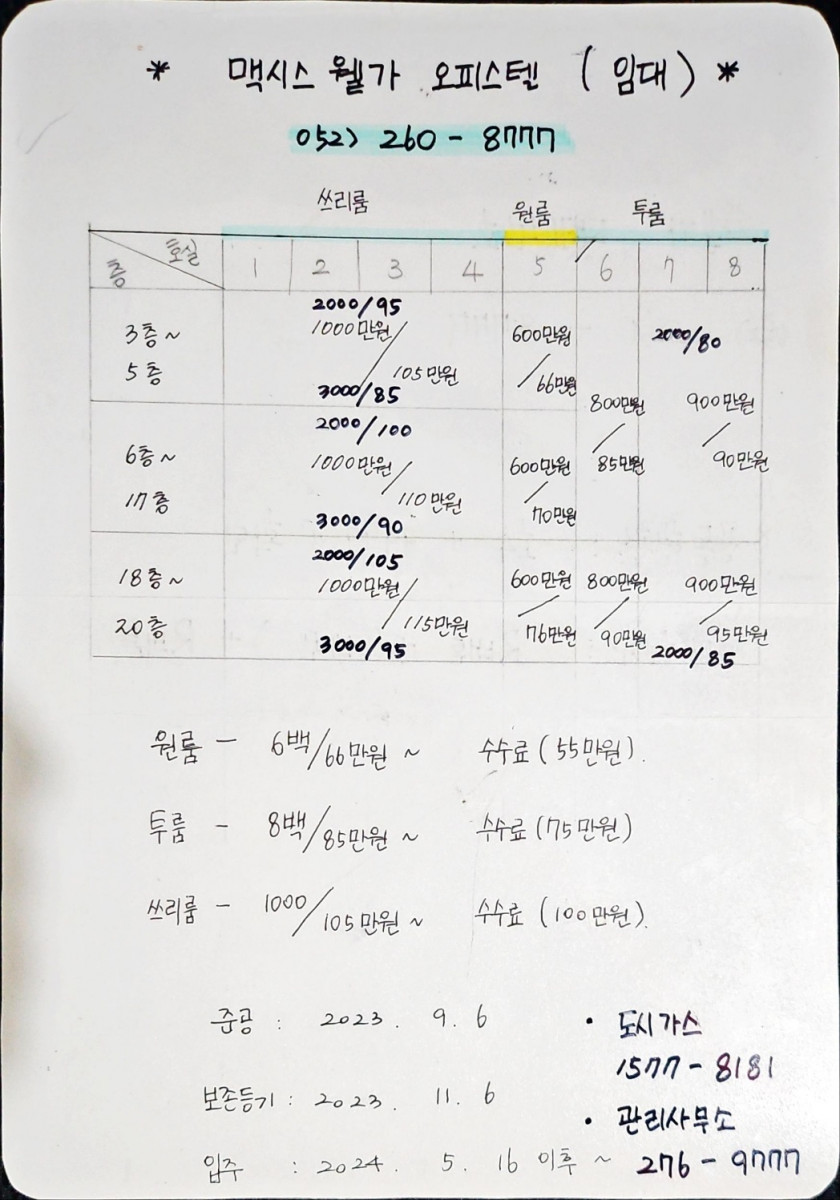 * 맥시스 웰가 오피스텔 (임대) *
052) 260-8777
쓰리룸 원룸 투룸
호실
층 1 2 3 4 5 6 7 8
2000/95
3층~ 1000만원/105만원 600만원/66만원 2000/80
5층
3000/85
800만원/85만원 900만원/90만원
2000/100
6층~ 1000만원/110만원 600만원/70만원
17층
3000/90
2000/105
18층~ 1000만원/115만원 600만원/76만원 800만원/90만원 900만원/95만원
20층
3000/95 2000/85
원룸 - 6백/66만원 ~ 수수료 (55만원).
투룸 - 8백/85만원 ~ 수수료 (75만원)
쓰리룸 - 1000/105만원 ~ 수수료 (100만원).
준공 : 2023. 9. 6
보존등기 : 2023. 11. 6
입주 : 2024. 5. 16 이후 ~
• 도시가스
1577-8181
• 관리사무소
276-9777